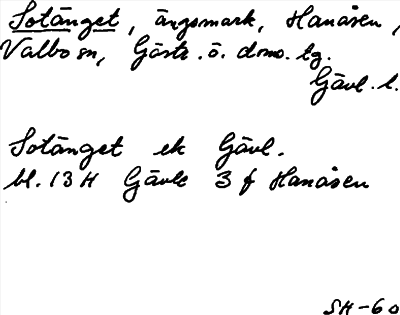 Sotänget, ängsmark, Hanåsen,
Valbo sn, Gästr. ö. dms. tg.
Gävl. l.
Sotänget ek Gävl.
bl. 13 H Gävle 3 f Hanåsen
SH-60